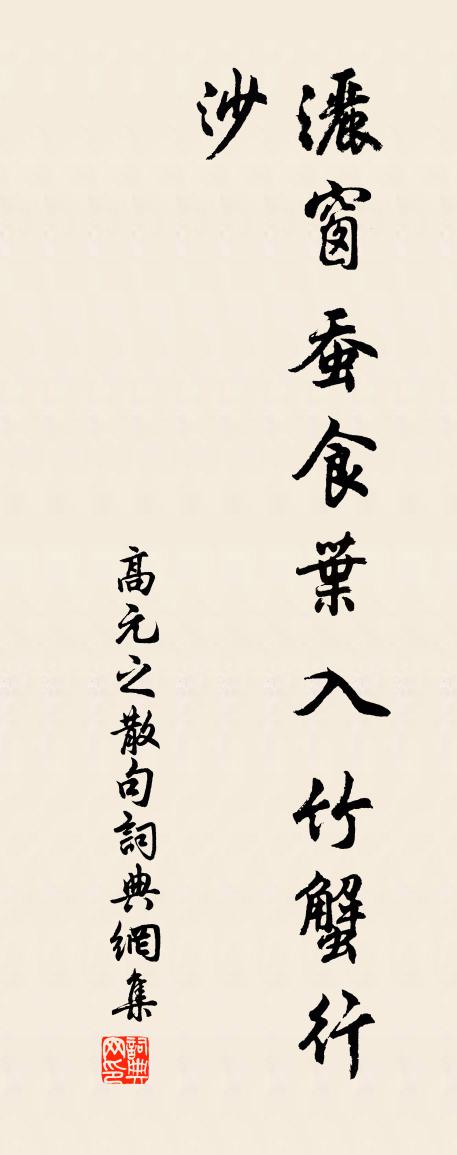 灑窗蚕食葉入竹蟹行
沙
高元之散句詞典網集
詞典
网印